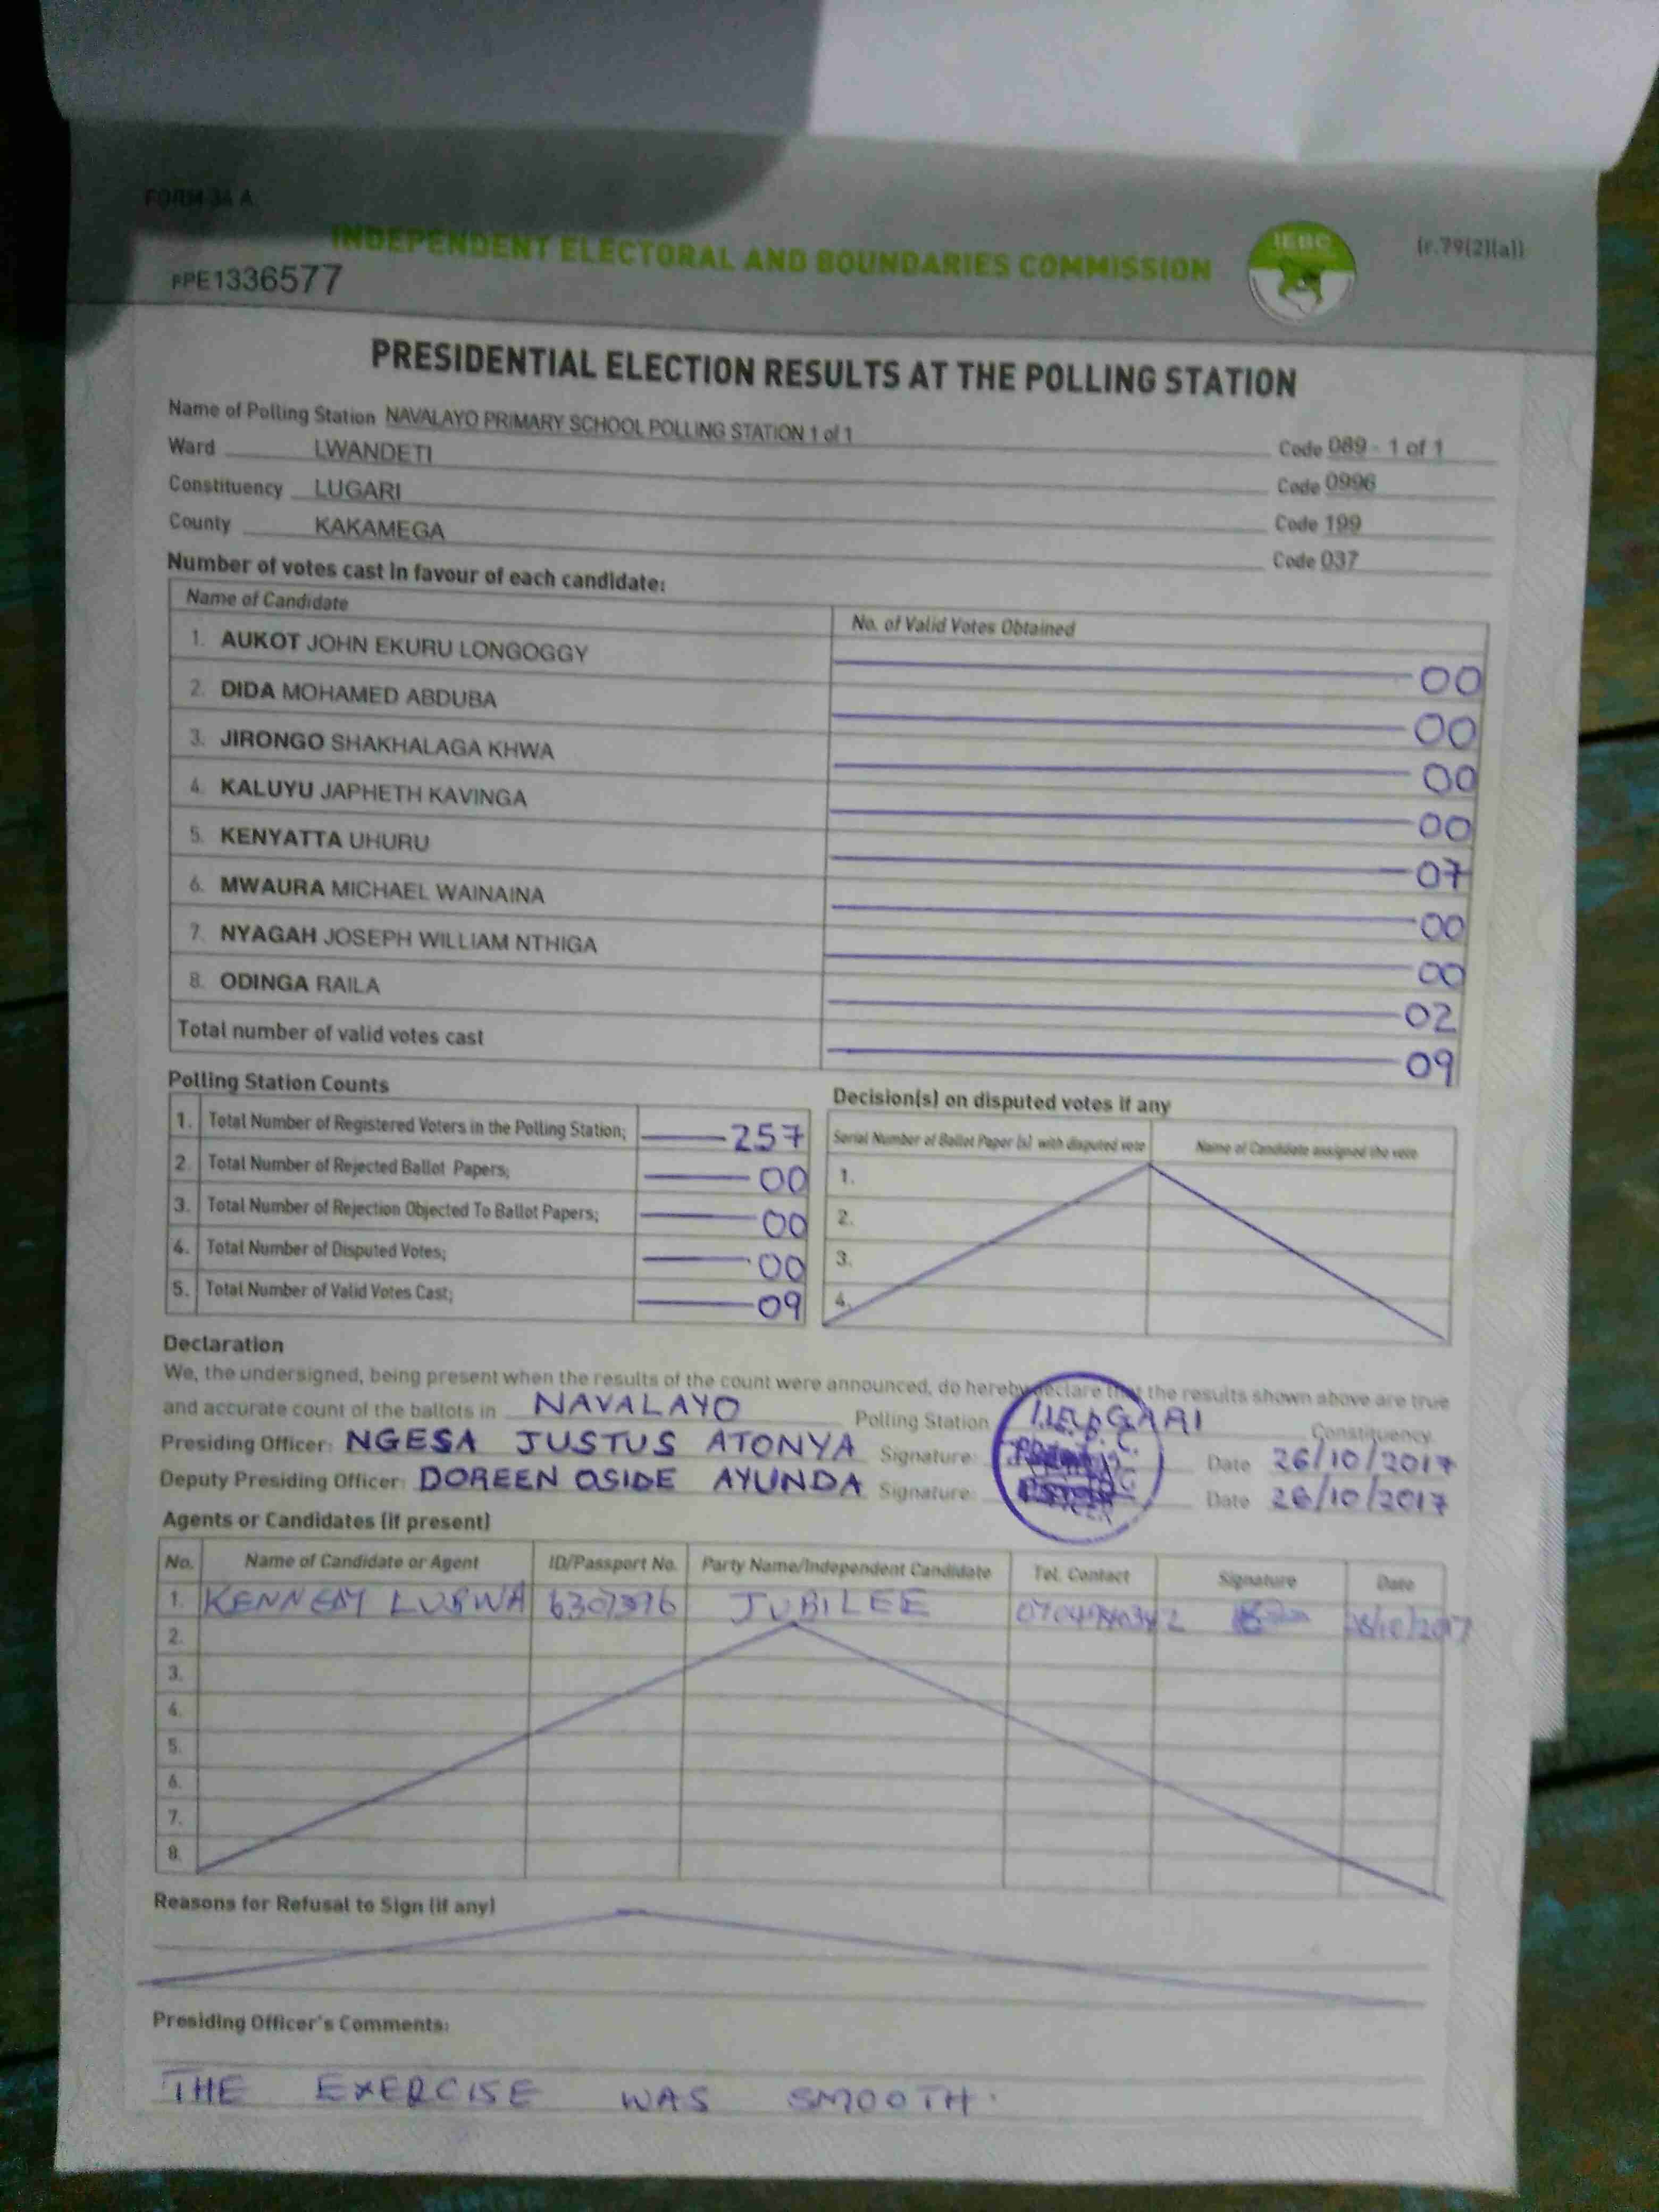 FORM 34 A
INDEPENDENT ELECTORAL AND BOUNDARIES COMMISSION
IEBC
(r.79(2)(a))
PPE1336577
PRESIDENTIAL ELECTION RESULTS AT THE POLLING STATION
Name of Polling Station NAVALAYO PRIMARY SCHOOL POLLING STATION 1 of 1 Code 089 - 1 of 1
Ward LWANDETI Code 0996
Constituency LUGARI Code 199
County KAKAMEGA Code 037
Number of votes cast in favour of each candidate:
Name of Candidate No. of Valid Votes Obtained
1. AUKOT JOHN EKURU LONGOGGY 00
2. DIDA MOHAMED ABDUBA 00
3. JIRONGO SHAKHALAGA KHWA 00
4. KALUYU JAPHETH KAVINGA 00
5. KENYATTA UHURU 07
6. MWAURA MICHAEL WAINAINA 00
7. NYAGAH JOSEPH WILLIAM NTHIGA 00
8. ODINGA RAILA 02
Total number of valid votes cast 09
Polling Station Counts
1. Total Number of Registered Voters in the Polling Station; 257
2. Total Number of Rejected Ballot Papers; 00
3. Total Number of Rejection Objected To Ballot Papers; 00
4. Total Number of Disputed Votes; 00
5. Total Number of Valid Votes Cast; 09
Decision(s) on disputed votes if any
Serial Number of Ballot Paper (s) with disputed vote Name of Candidate assigned the vote
1.
2.
3.
4.
Declaration
We, the undersigned, being present when the results of the count were announced, do hereby declare that the results shown above are true
and accurate count of the ballots in NAVALAYO Polling Station LUGARI Constituency.
Presiding Officer: NGESA JUSTUS ATONYA Signature: Date 26/10/2017
Deputy Presiding Officer: DOREEN OSIDE AYUNDA Signature: Date 26/10/2017
Agents or Candidates (if present)
No. Name of Candidate or Agent ID/Passport No. Party Name/Independent Candidate Tel. Contact Signature Date
1. JUBILEE 26/10/2017
2.
3.
4.
5.
6.
7.
8.
Reasons for Refusal to Sign (if any)
Presiding Officer's Comments:
THE EXERCISE WAS SMOOTH.